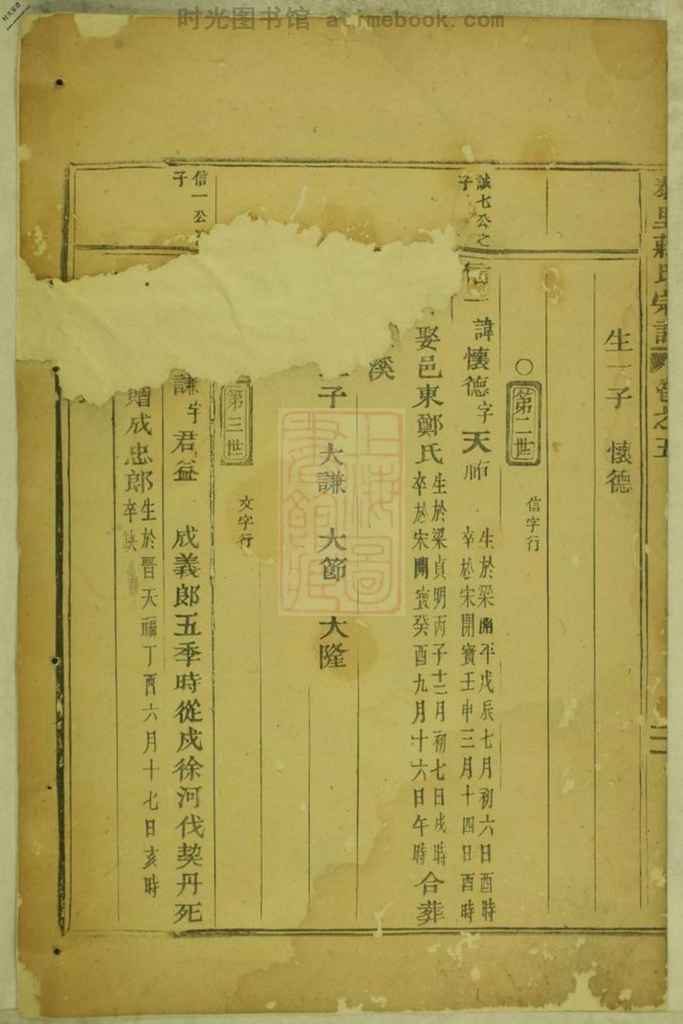 时光图书馆 atimebook.com
蔣氏宗譜 卷之五
生一子 懷德
第二世
信字行
誠七公之子
信一 諱懷德字天 生於梁開平戊辰七月初六日酉時
卒於宋開寶壬申三月十四日酉時
娶邑東鄭氏 生於梁貞明丙子十二月初七日戌時
卒於宋開寶癸酉九月十六日午時 合葬
溪
子 大謙 大節 大隆
第三世
文字行
信一公
子
謙字君益 成義郎五季時從戍徐河伐契丹死
贈成忠郎 生於晋天福丁酉六月十七日亥時
卒缺